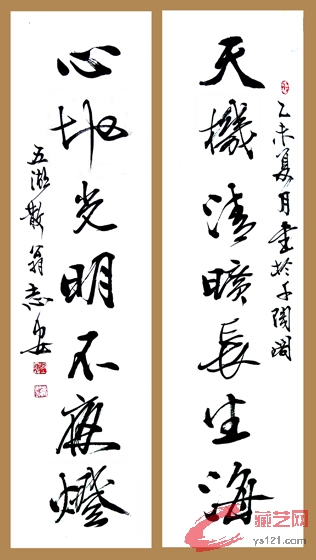 天機清曠長生海
乙未夏月書於子陶閣
心地光明不夜燈
五湖散翁志安
藏艺网
ys121.com